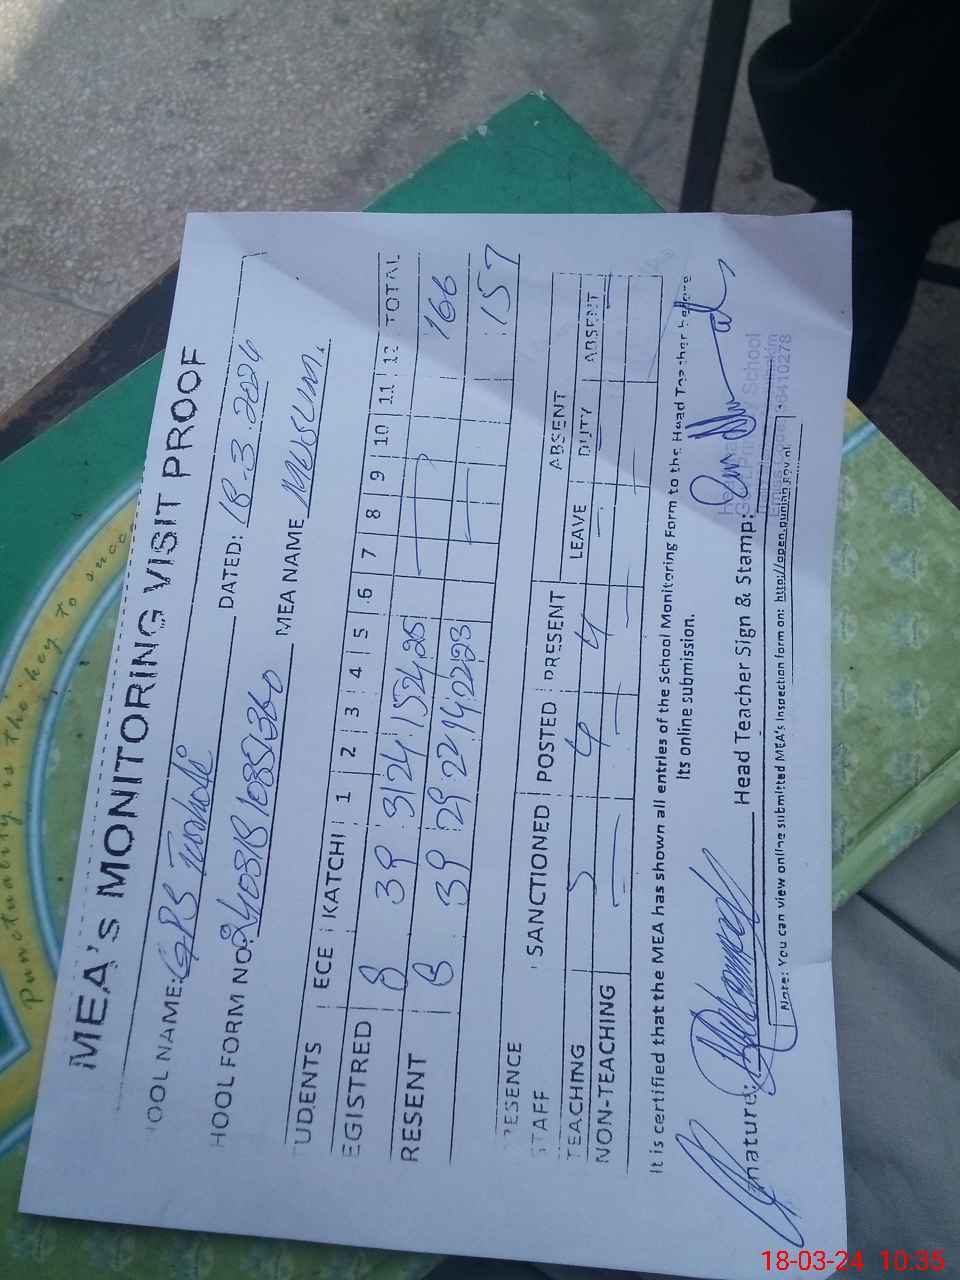 MEA's MONITORING VISIT PROOF
HOOL NAME: GPS DATED: 18-3-2024
HOOL FORM NO: MEA NAME
TUDENTS ECE KATCHI 1 2 3 4 5 6 7 8 9 10 11 12 TOTAL
EGISTRED 8 39 31 24 15 24 25 166
RESENT 8 39 29 22 14 22 23 157
ESENCE ABSENT
TAFF SANCTIONED POSTED PRESENT LEAVE DUTY ABSENT
TEACHING 5 4 4
NON-TEACHING
It is certified that the MEA has shown all entries of the School Monitoring Form to the Head Teacher before
Its online submission.
nature: Head Teacher Sign & Stamp:
School
Note: You can view online submitted MEA's Inspection form on: http://open.punjab.gov.pk
Punctuality is the key to succ
18-03-24 10:35